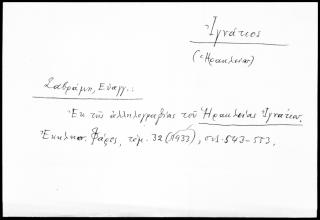 Ἰγνάτιος
(Ἡρακλείας)
Σαβράμη, Εὐαγγ.:
Ἐκ τῆς ἀλληλογραφίας τοῦ Ἡρακλείας Ἰγνατίου.
Ἐκκλησ. Φάρος, τόμ. 32 (1933), σελ. 543-553.